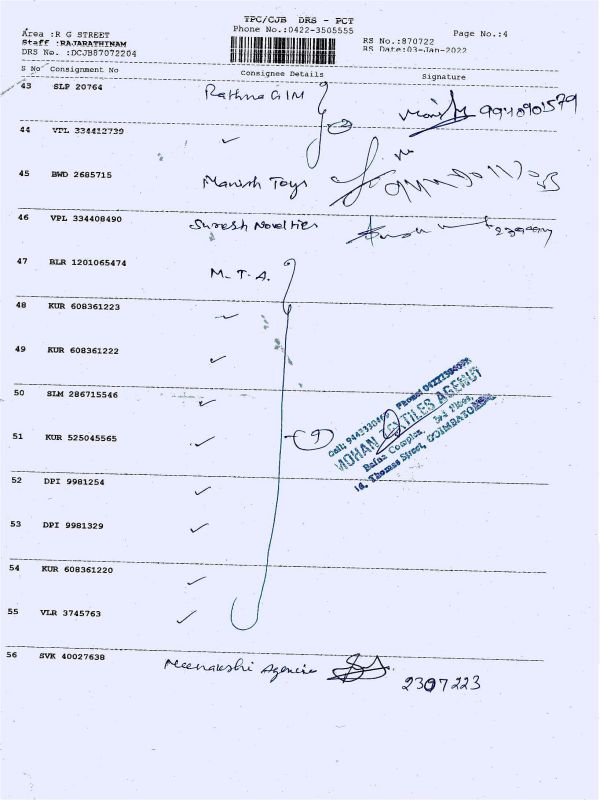 TPC/CJB DRS - PCT
Phone No.:0422-3505555
Area :R G STREET
Page No.:4
Staff :RAJARATHINAM
RS No.:870722
DRS No. :DCJB87072204
RS Date:03-Jan-2022
S No Consignment No Consignee Details Signature
43 SLP 20764 Rathna GIM
44 VPL 334412739
45 BWD 2685715 Manish Toys
46 VPL 334408490 Suresh Novelties
47 BLR 1201065474 M-T-A.
48 KUR 608361223
49 KUR 608361222
50 SLM 286715546
51 KUR 525045565 (9)
MOHAN TEXTILES AGENCY
Bafna Complex, 3rd Floor,
16, Thomas Street, COIMBATORE
52 DPI 9981254
53 DPI 9981329
54 KUR 608361220
55 VLR 3745763
56 SVK 40027638 Meenakshi Agencies
2307223